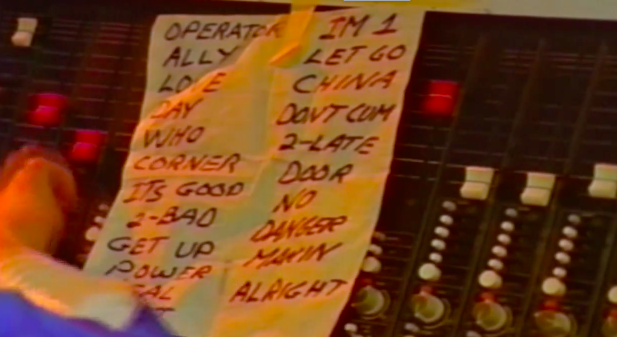 OPERATOR
ALLY
LOVE
DAY
WHO
CORNER
ITS GOOD
2-BAD
GET UP
POWER
IM 1
LET GO
CHINA
DONT CUM
2-LATE
DOOR
NO
DANGER
MAKIN
ALRIGHT